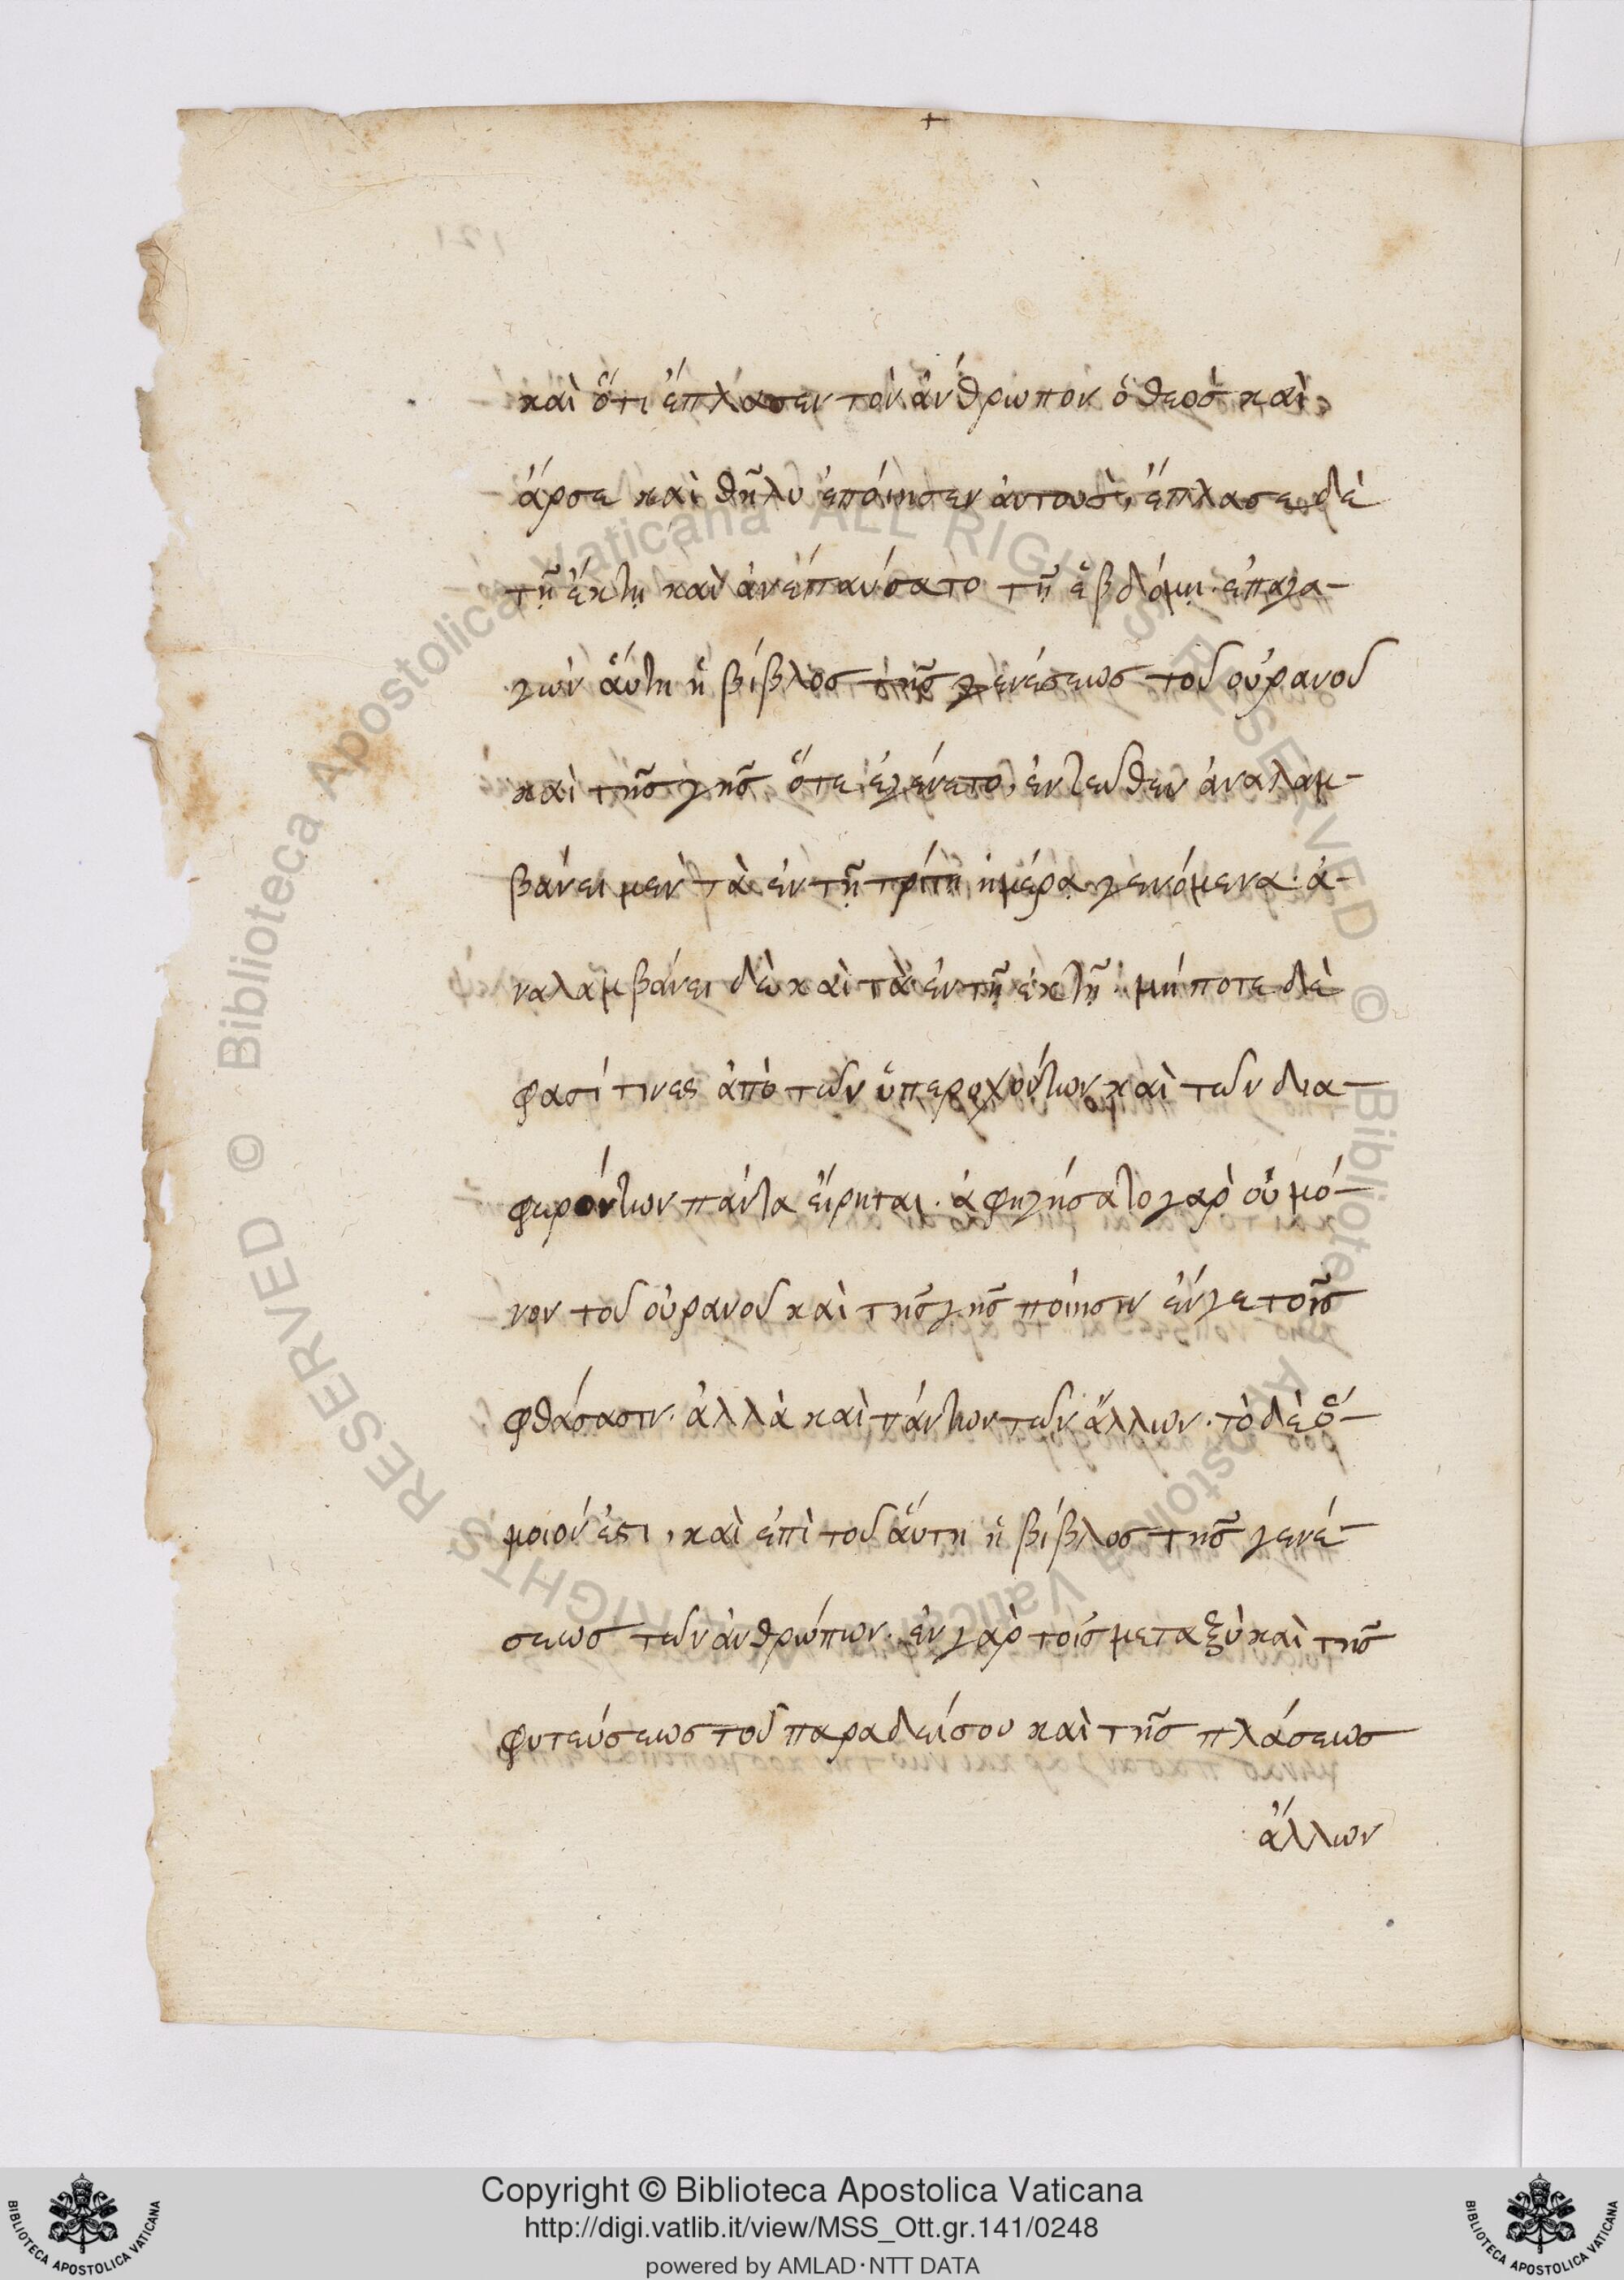 καὶ ὅτι ἔπλασεν τὸν ἄνθρωπον ὁ θεὸσ καὶ
ἄρσε καὶ θῆλυ ἐποίησεν ἀυτουσ̀, ἔπλασε δὲ
τῇ ἕκτῃ καὶ ἀνεπαύσατο τῇ ἑβδόμῃ· ἐπαγα-
γὼν ἅυτη ἡ βίβλοσ τῆσ γενέσεωσ τοῦ οὐρανοῦ
καὶ τῆσ γῆσ ὅτε ἐγένετο, ἐντεῦθεν ἀναλαμ-
βάνει μὲν τὰ ἐν τῇ τρίτῃ ἡμέρᾳ γενόμενα· ἀ-
ναλαμβάνει δὲ καὶ τὰ ἐν τῇ ἑκτῇ· μήποτε δὲ
φασί τινες ἀπὸ τῶν ὑπερεχόντων καὶ τῶν δια-
φερόντων πάντα ἔιρηται· ἀφηγήσατο γαρ̀ οὐ μό-
νον τοῦ οὐρανοῦ καὶ τῆσ γῆσ ποίησιν ἔν γε τοῖσ
φθάσασιν· ἀλλὰ καὶ πάντων τῶν ἄλλων· τὸ δὲ ὅ-
μοιόν ἐστι, καὶ ἐπὶ τοῦ ἅυτη ἡ βίβλοσ τῆσ γενέ-
σεωσ τῶν ἀνθρώπων· ἐν γὰρ τοῖσ μεταξὺ καὶ τῆσ
φυτεύσεωσ τοῦ παραδείσου καὶ τῆσ πλάσεωσ
ἄλλων
Copyright © Biblioteca Apostolica Vaticana
http://digi.vatlib.it/view/MSS_Ott.gr.141/0248
powered by AMLAD·NTT DATA